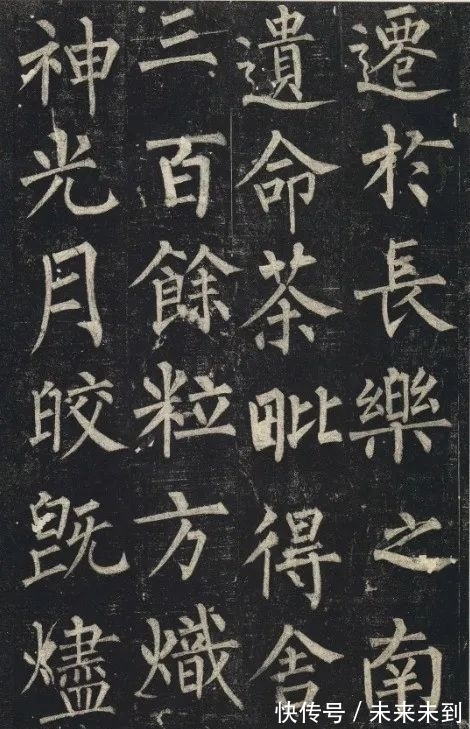 遷於長樂之南
遺命茶毗得舍
三百餘粒方熾
神光月皎既燼
快传号/未来未到